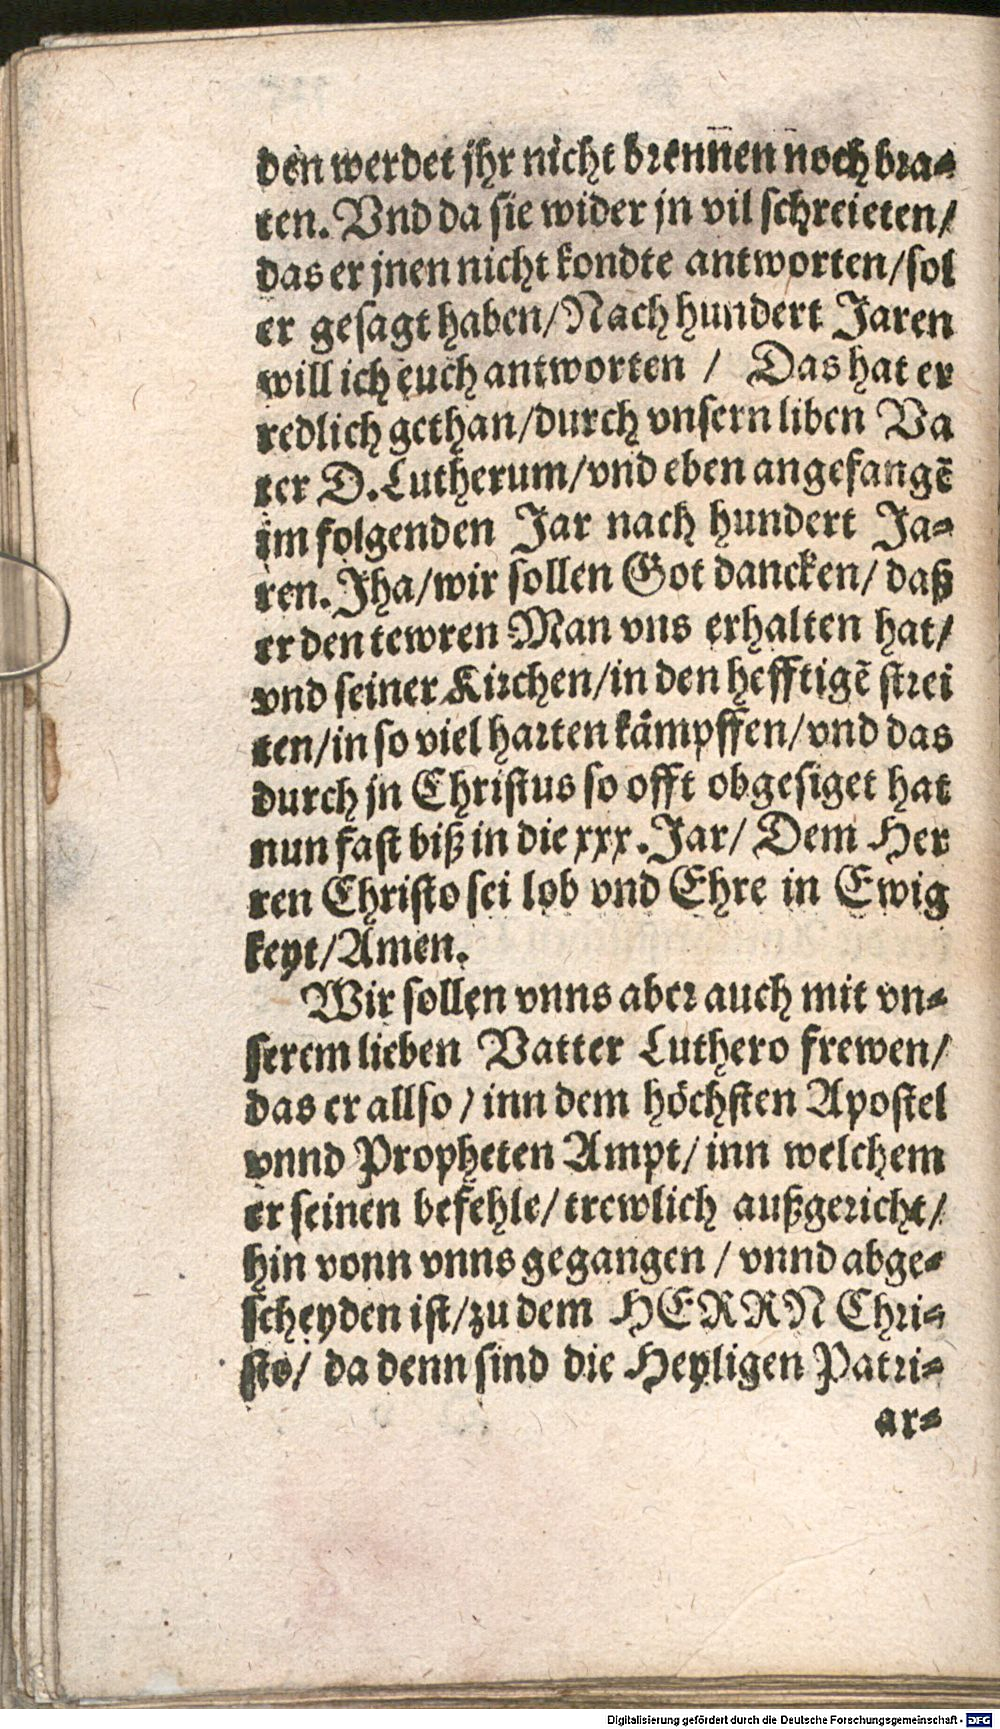 den werdet jhr nicht brennen noch bra⸗
ten. Vnd da sie wider jn vil schreieten/
das er jnen nicht kondte antworten/sol
er gesagt haben/Nach hundert Jaren
will ich euch antworten / Das hat er
redlich gethan/durch vnsern liben Va
ter D. Lutherum/vnd eben angefangē
im folgenden Jar nach hundert Ja⸗
ren. Jha/wir sollen Got dancken/ daß
er den tewren Man vns erhalten hat/
vnd seiner Kirchen/in den hefftigē strei
ten/in so viel harten kämpffen/vnd das
durch jn Christus so offt obgesiget hat
nun fast biß in die xxx. Jar/ Dem Her
ren Christo sei lob vnd Ehre in Ewig
keyt/Amen.
Wir sollen vnns aber auch mit vn⸗
serem lieben Vatter Luthero frewen/
das er allso / inn dem höchsten Apostel
vnnd Propheten Ampt/ inn welchem
er seinen befehle/ trewlich außgericht/
hin vonn vnns gegangen / vnnd abge⸗
scheyden ist/zu dem HERRN Chri⸗
sto/ da denn sind die Heyligen Patri⸗
ar⸗
Digitalisierung gefördert durch die Deutsche Forschungsgemeinschaft - DFG